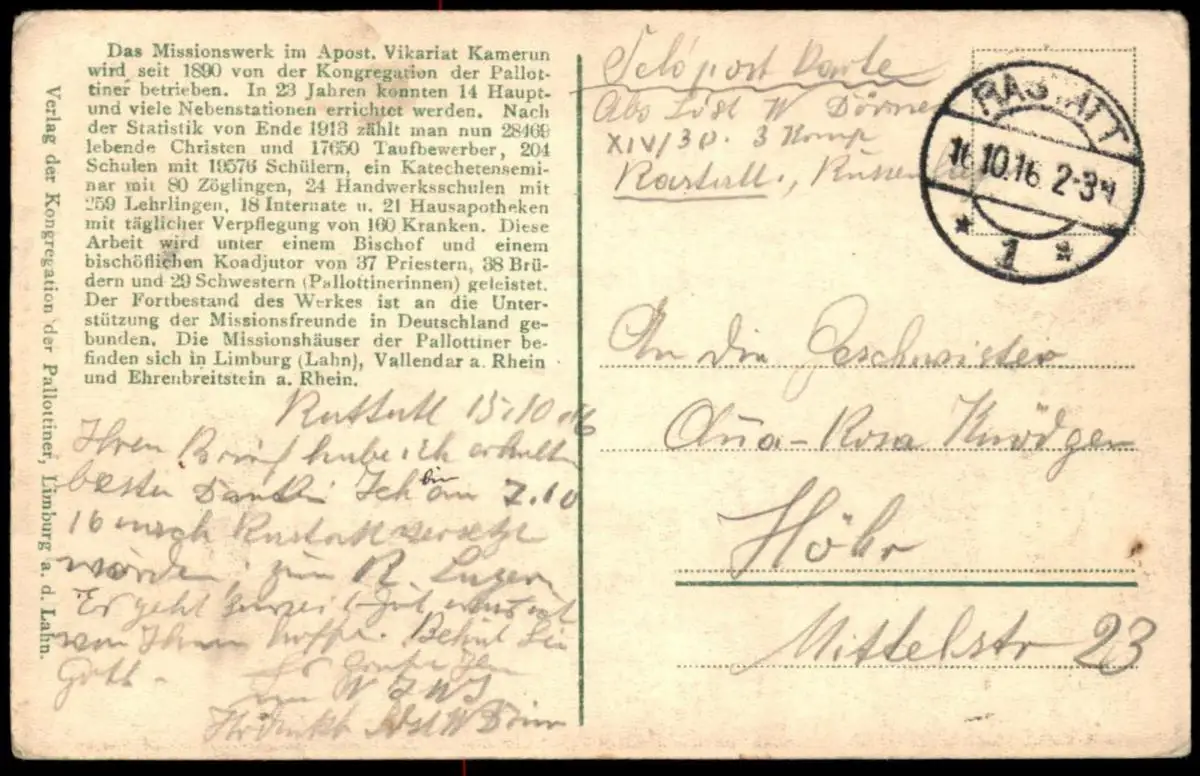 Das Missionswerk im Apost. Vikariat Kamerun
wird seit 1890 von der Kongregation der Pallot-
tiner betrieben. In 23 Jahren konnten 14 Haupt-
und viele Nebenstationen errichtet werden. Nach
der Statistik von Ende 1913 zählt man nun 28469
lebende Christen und 17650 Taufbewerber, 204
Schulen mit 19576 Schülern, ein Katechetensemi-
nar mit 80 Zöglingen, 24 Handwerksschulen mit
259 Lehrlingen, 18 Internate u. 21 Hausapotheken
mit täglicher Verpflegung von 160 Kranken. Diese
Arbeit wird unter einem Bischof und einem
bischöflichen Koadjutor von 37 Priestern, 38 Brü-
dern und 29 Schwestern (Pallottinerinnen) geleistet.
Der Fortbestand des Werkes ist an die Unter-
stützung der Missionsfreunde in Deutschland ge-
bunden. Die Missionshäuser der Pallottiner be-
finden sich in Limburg (Lahn), Vallendar a. Rhein
und Ehrenbreitstein a. Rhein.
Verlag der Kongregation der Pallottiner, Limburg a. d. Lahn.
Rastatt 15.10.16
Ihren Brief habe ich erhalten
besten Dank. Ich bin am 7.10
16 nach Rastatt versetzt
worden, zum R.
Es geht zurzeit gut
von Ihnen hoffe. Behüt Sie
Gott.
Es
W
W
Karte
Abs W
XIV/30. 3 Komp
Rastatt.,
RASTATT
16.10.16 2-3N
* 1 *
An die Geschwister
Rosa Knödgen
Höhr
Mittelstr 23